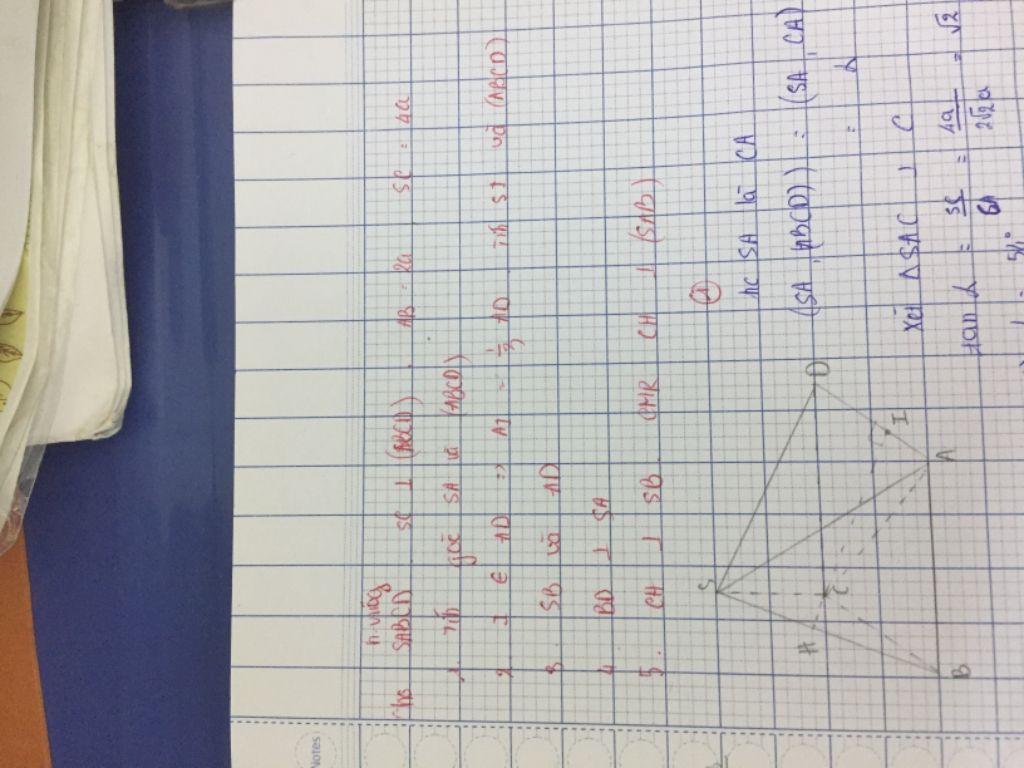 Notes
h.vuông
Chóp SABCD . SC ⊥ (ABCD) . AB = 2a SC = 4a
1 Tíh góc SA và (ABCD)
2 I ∈ AD => AI = 1/3 AD Tíh SI và (ABCD)
3. SB và AD
4 BD ⊥ SA
5. CH ⊥ SB . CMR CH ⊥ (SAB)
S
H
C
D
I
B
A
1
hc SA là CA
(SA, (ABCD)) = (SA, CA)
= α
Xét Δ SAC ⊥ C
tan α = SC/CA = 4a/2√2a = √2